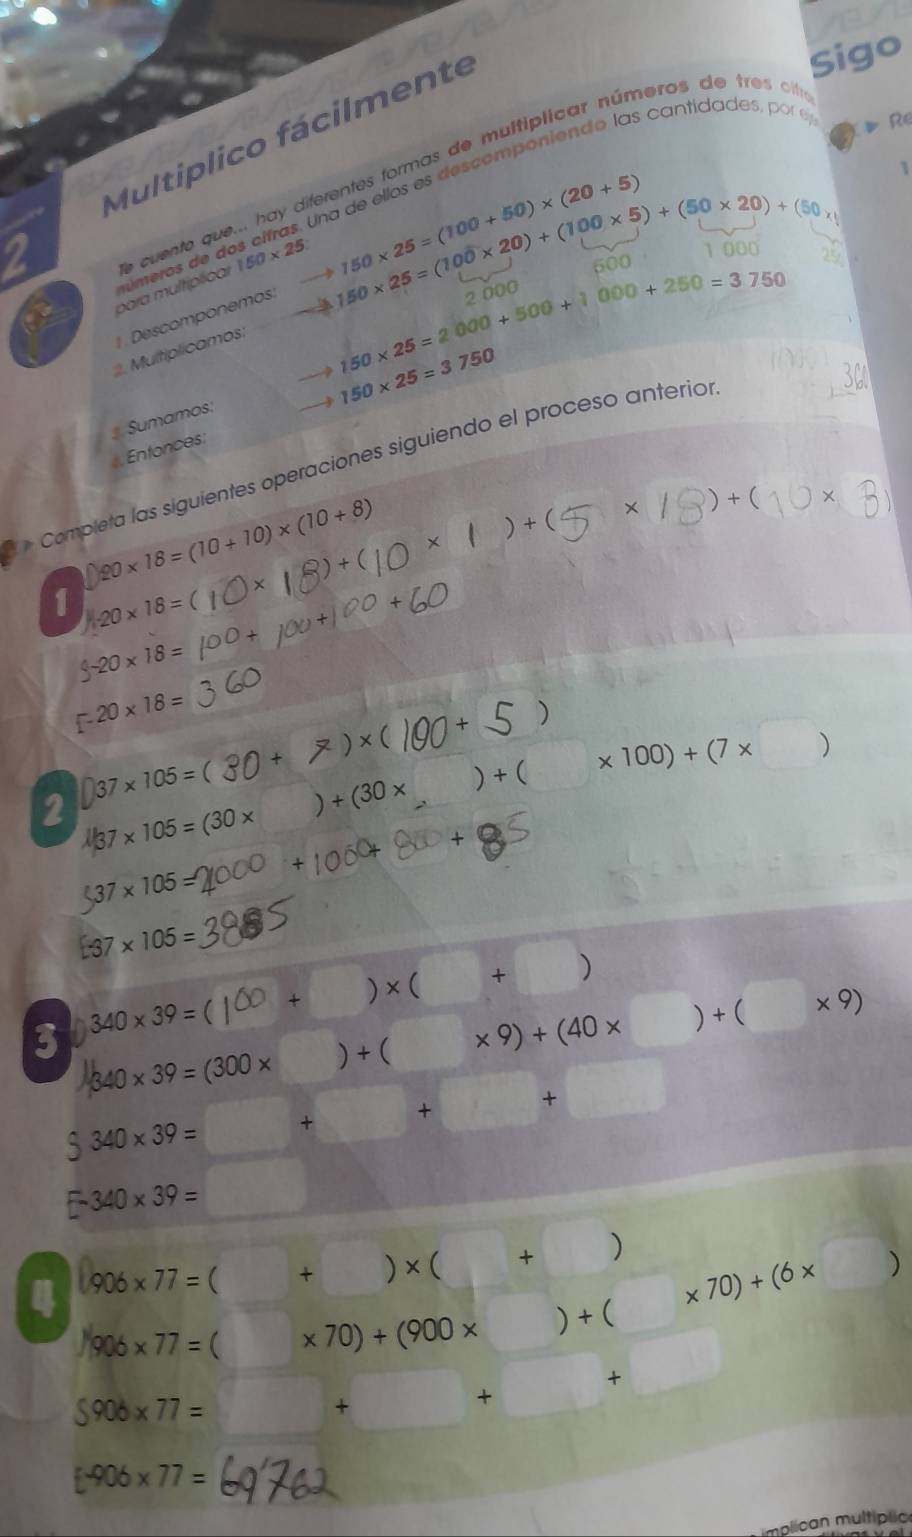 Sigo
Multiplico fácilmente
Re
1
2
Te cuento que... hay diferentes formas de multiplicar números de tres cifras
números de dos cifras. Una de ellos es descomponiendo las cantidades, por
para multiplicar 150 × 25:
1. Descomponemos: → 150 × 25 = (100 + 50) × (20 + 5)
2. Multiplicamos: → 150 × 25 = (100 × 20) + (100 × 5) + (50 × 20) + (50 ×
2 000 500 1 000 250
3. Sumamos: → 150 × 25 = 2 000 + 500 + 1 000 + 250 = 3 750
4. Entonces: → 150 × 25 = 3 750
360
Completa las siguientes operaciones siguiendo el proceso anterior.
1
D 20 × 18 = (10 + 10) × (10 + 8)
M-20 × 18 = (10 × 18) + (10 × 1) + (5 × 18) + (10 × 8)
S-20 × 18 = 100 + 100 + 100 + 60
E-20 × 18 = 360
2
D 37 × 105 = (30 + 7) × (100 + 5)
M 37 × 105 = (30 × ) + (30 × ) + ( × 100) + (7 × )
S 37 × 105 = 2000 + 1000 + 800 + 85
E-37 × 105 = 3885
3
D 340 × 39 = (100 + ) × ( + )
M 340 × 39 = (300 × ) + ( × 9) + (40 × ) + ( × 9)
S 340 × 39 = + + +
E-340 × 39 =
4
D 906 × 77 = ( + ) × ( + )
M 906 × 77 = ( × 70) + (900 × ) + ( × 70) + (6 × )
S 906 × 77 = + + +
E-906 × 77 = 69'762
implican multiplic